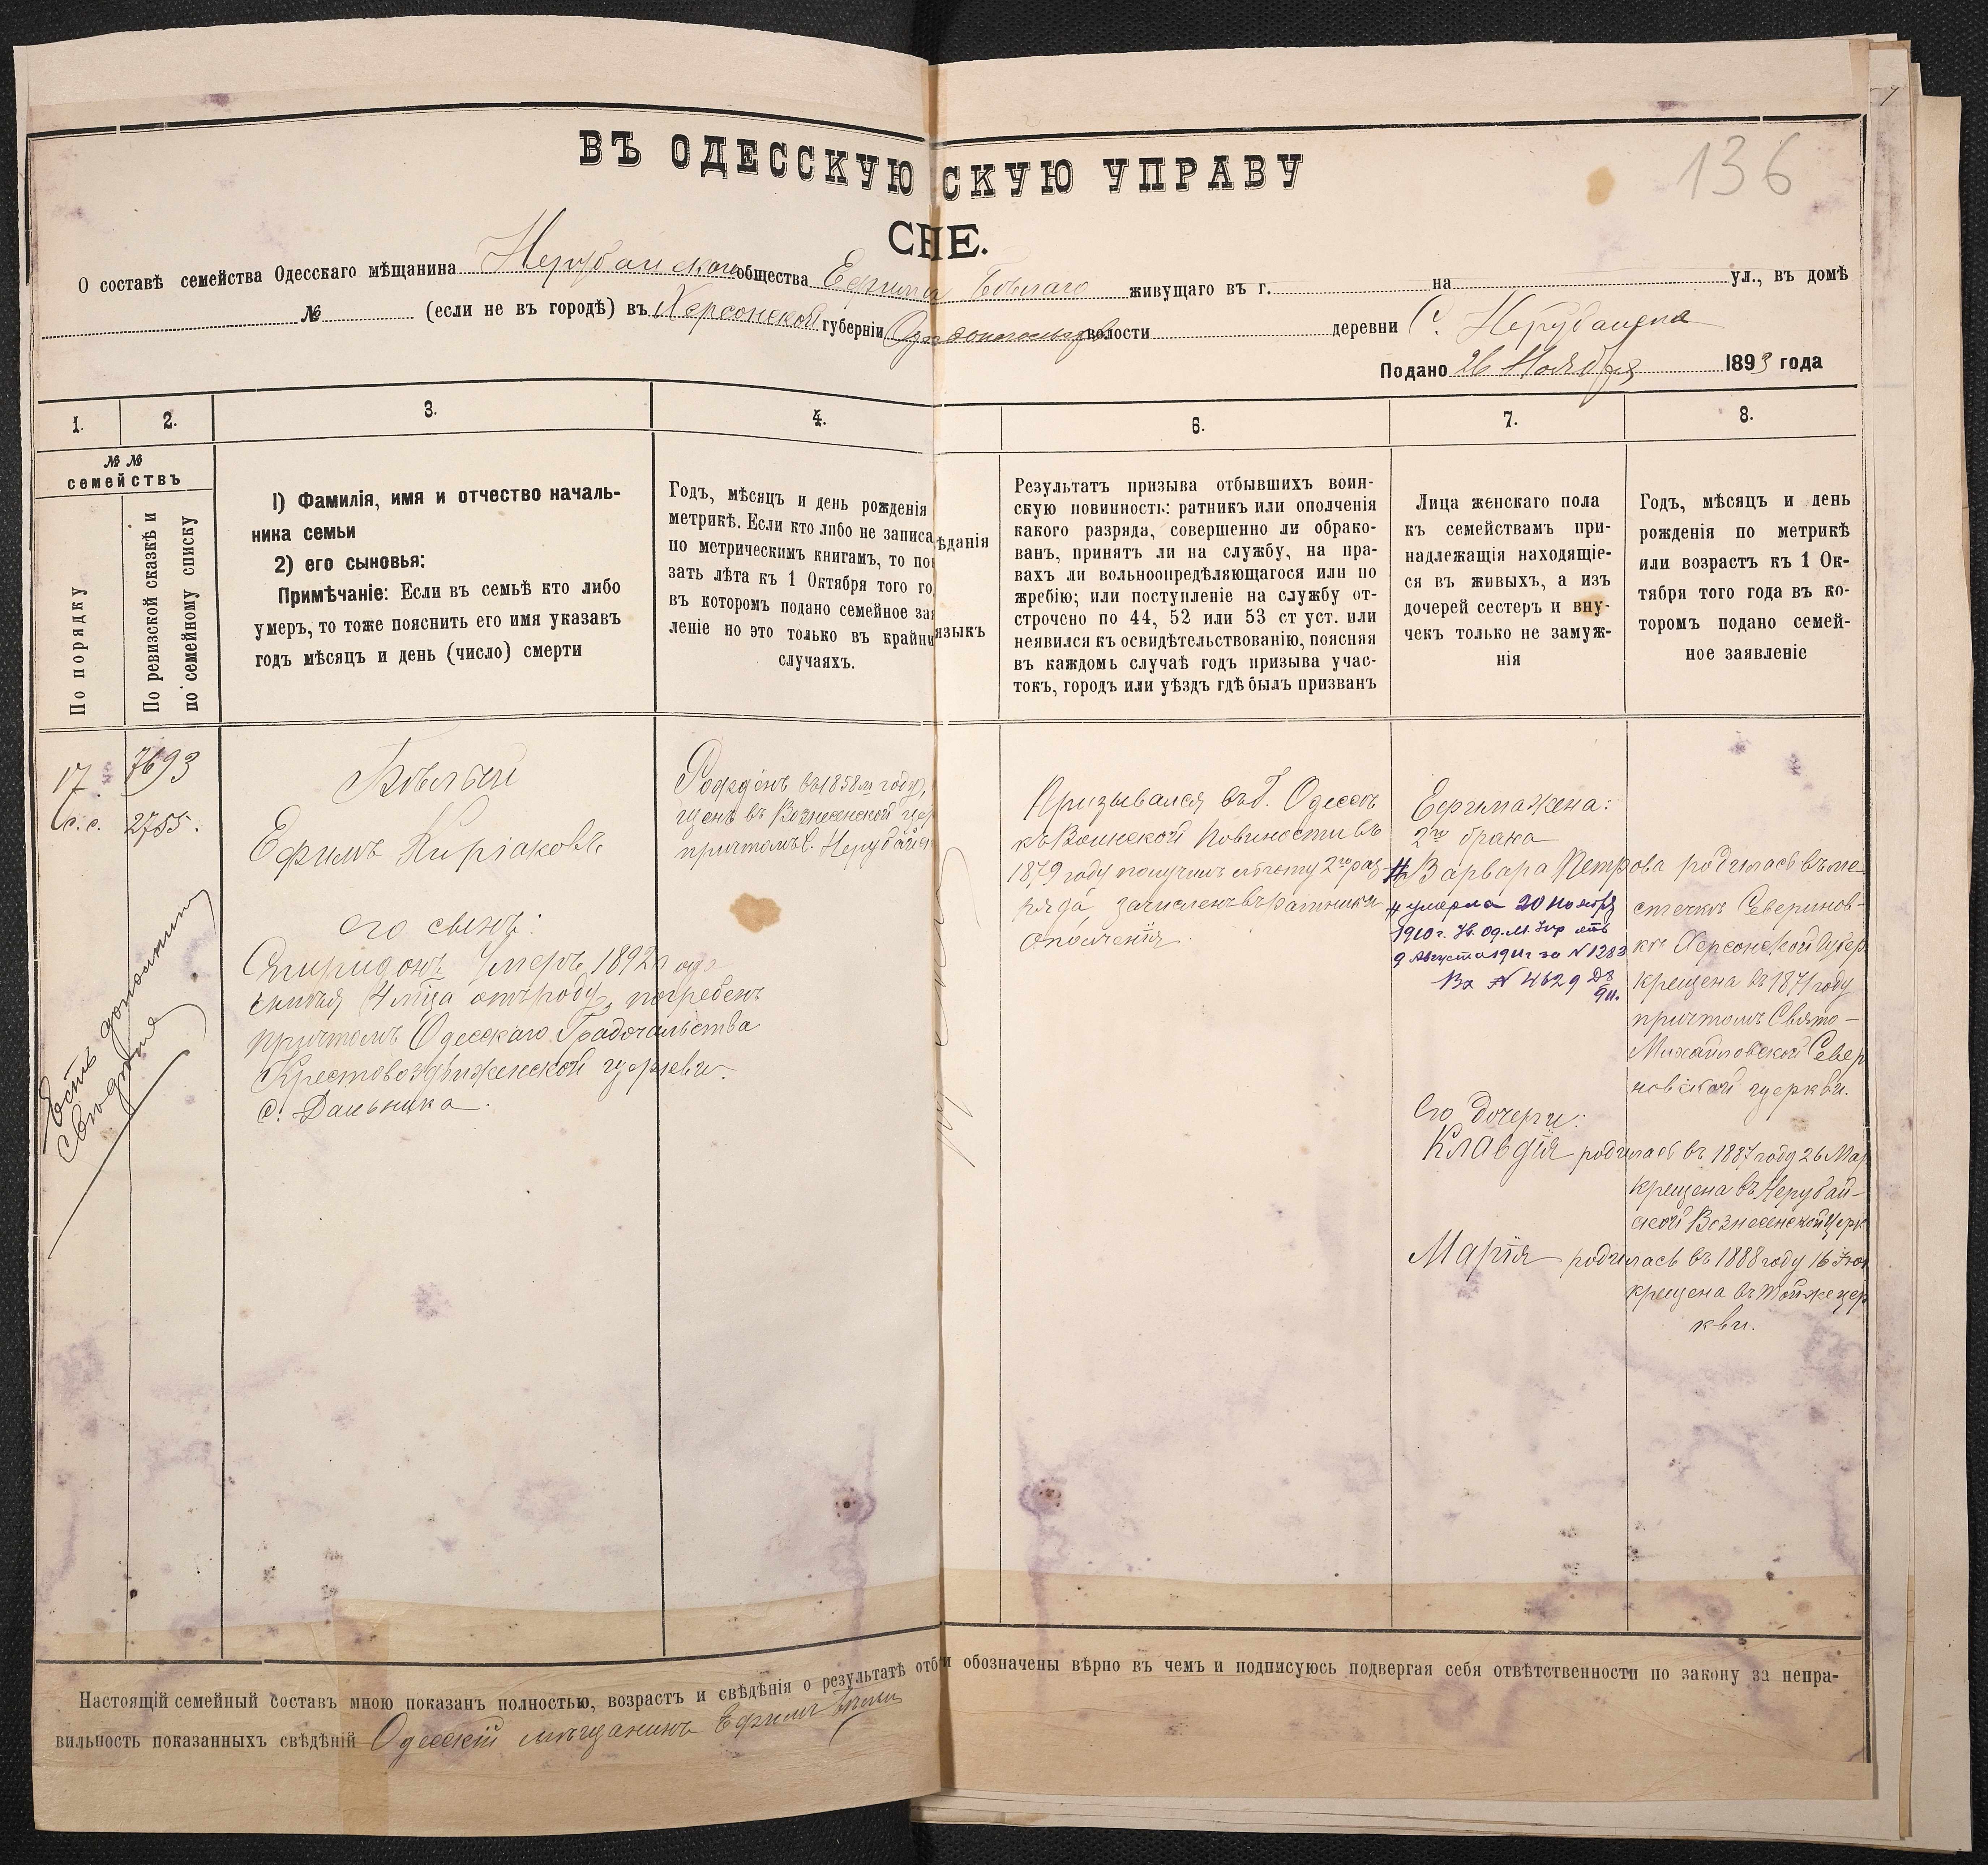 7
136
ВЪ ОДЕССКУЮ СКУЮ УПРАВУ
СНЕ.
О составѣ семейства Одесскаго мѣщанина Нерубайскаго общества Ефима Бѣлаго живущаго въ г. на ул., въ домѣ
№ (если не въ городѣ) въ Херсонской губерніи волости деревни С. Нерубайска
Подано 26 Ноября 1893 года
1. 2. 3. 4. 6. 7. 8.
№ № семействъ
По порядку
По ревизской сказкѣ и по семейному списку
1) Фамилія, имя и отчество началь-
ника семьи
2) его сыновья:
Примѣчаніе: Если въ семьѣ кто либо
умеръ, то тоже пояснить его имя указавъ
годъ мѣсяцъ и день (число) смерти
Годъ, мѣсяцъ и день рожденія
метрикѣ. Если кто либо не записа
по метрическимъ книгамъ, то по
зать лѣта къ 1 Октября того го
въ которомъ подано семейное зая
леніе но это только въ крайни
случаяхъ.
ѣданія
языкъ
Результатъ призыва отбывшихъ воин-
скую повинность: ратникъ или ополченія
какого разряда, совершенно ли обрако-
ванъ, принятъ ли на службу, на пра-
вахъ ли вольноопредѣляющагося или по
жребію; или поступленіе на службу от-
строчено по 44, 52 или 53 ст уст. или
неявился къ освидѣтельствованію, поясняя
въ каждомъ случаѣ годъ призыва учас-
токъ, городъ или уѣздъ гдѣ былъ призванъ
Лица женскаго пола
къ семействамъ при-
надлежащія находящіе-
ся въ живыхъ, а изъ
дочерей сестеръ и вну-
чекъ только не замуж-
нія
Годъ, мѣсяцъ и день
рожденія по метрикѣ
или возрастъ къ 1 Ок-
тября того года въ ко-
торомъ подано семей-
ное заявленіе
17. 7693
с.с. 2755.
Есть дополнит
свѣдѣнія
Бѣлый
Ефимъ Киріаковъ
его сынъ:
Спиридонъ Умеръ 1892 года
4 мѣсца отъ роду, погребенъ
причтомъ Одесскаго Градочальства
Крестовоздвиженской церкви.
с. Дальника.
Рожденъ въ 1858м году,
щенъ въ Вознесенской цер
причтомъ С. Нерубайск
Призывался въ Г. Одессѣ
къ Воинской Повиности въ
1879 году получилъ льготу 2го раз
ряда, зачисленъ въ ратники
ополченія.
Ефима жена:
2го брака
# Варвара Петрова родилась въ мѣ
# умерла 20 ноября
1910 г. Ув. Од. М. Упр отъ
9 Августа 1911 г за № 1283
Вх № 4629 Дѣ
911.
стечкѣ Северинов-
кѣ Херсонской Губер
крещена въ 1871 году
причтомъ Свято-
Михайловской Севери
новской церкви.
Его дочери:
Клавдія родилась въ 1887 году 26 Мар
крещена въ Нерубай-
ской Вознесенской Церк
Марія родилась въ 1888 году 16 Іюл
крещена въ той же цер
кви.
Настоящій семейный составъ мною показанъ полностью, возрастъ и свѣдѣнія о результатѣ отбы и обозначены вѣрно въ чемъ и подписуюсь подвергая себя отвѣтственности по закону за непра-
вильность показанныхъ свѣдѣній Одесскій мѣщанинъ Ефимъ Бѣлый